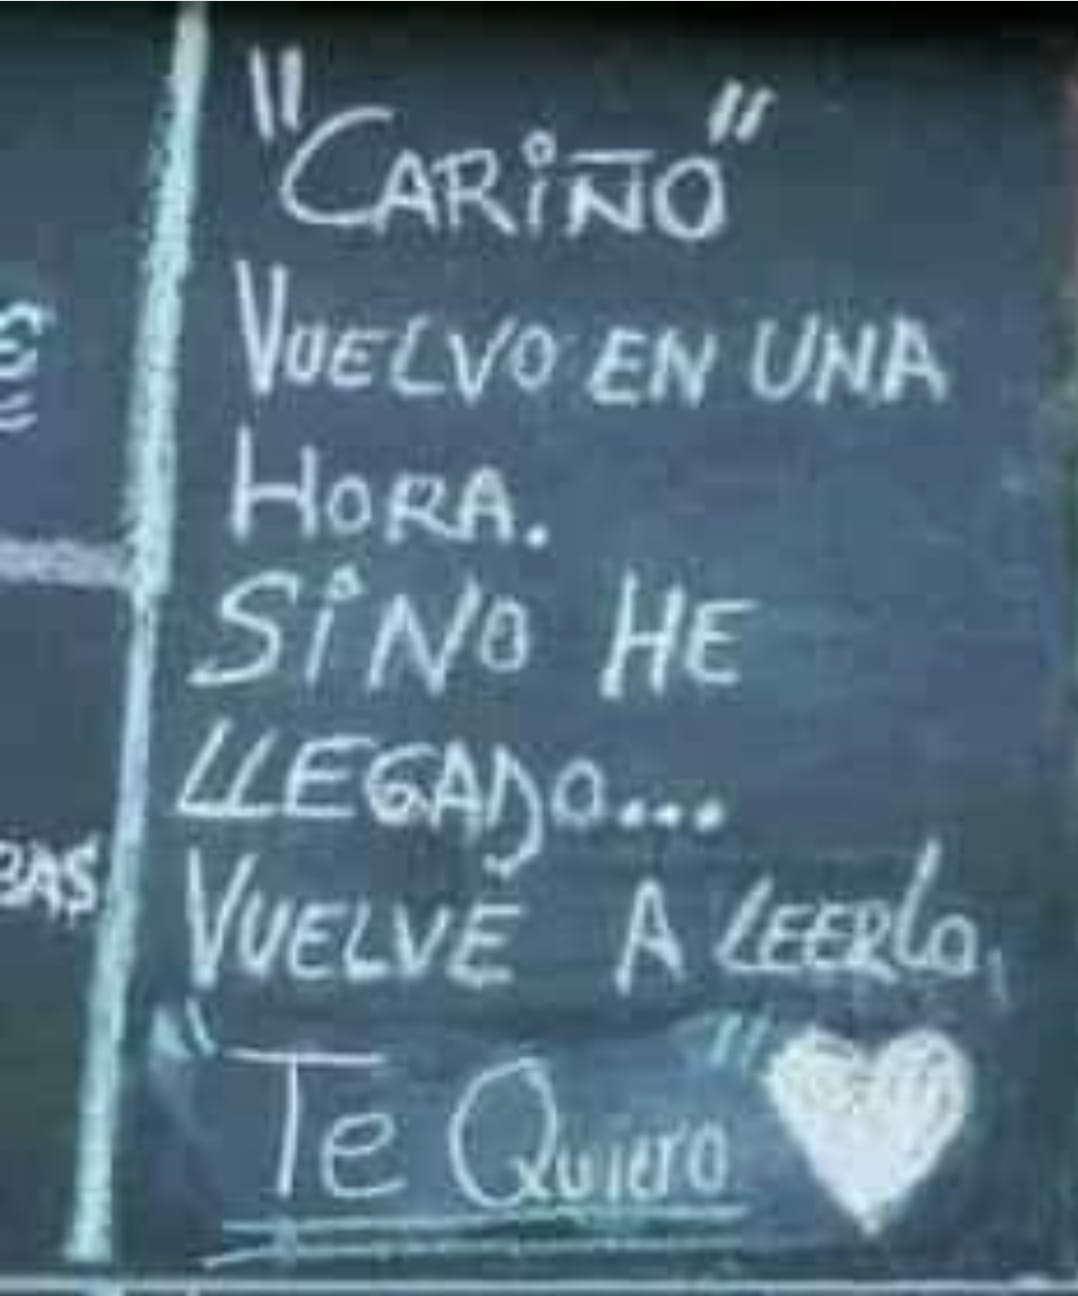 "CARiÑO"
VUELVO EN UNA
HORA.
SiNO HE
LLEGADO...
VUELVE A LEERLO,
"Te Quiero"